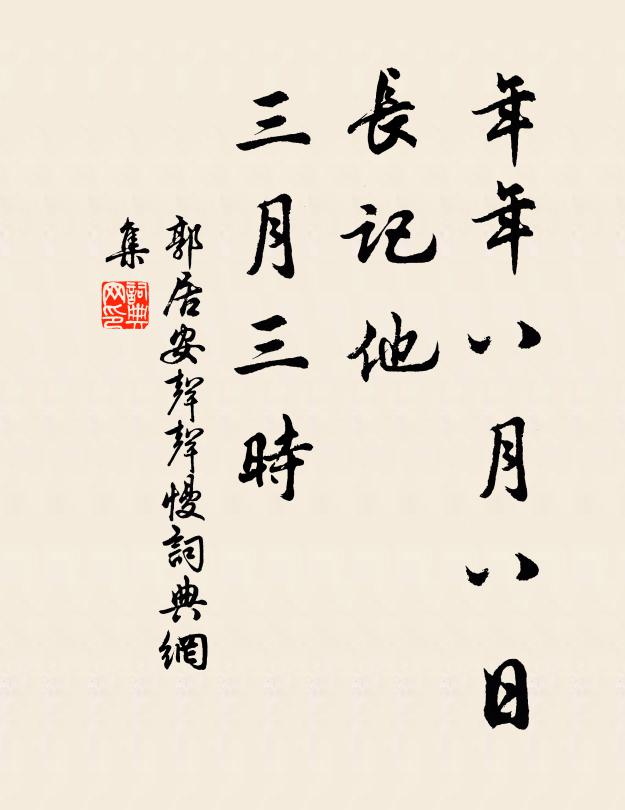 年年八月八日
長記他
三月三時
郭居安聲聲慢詞典網
集
詞典網印